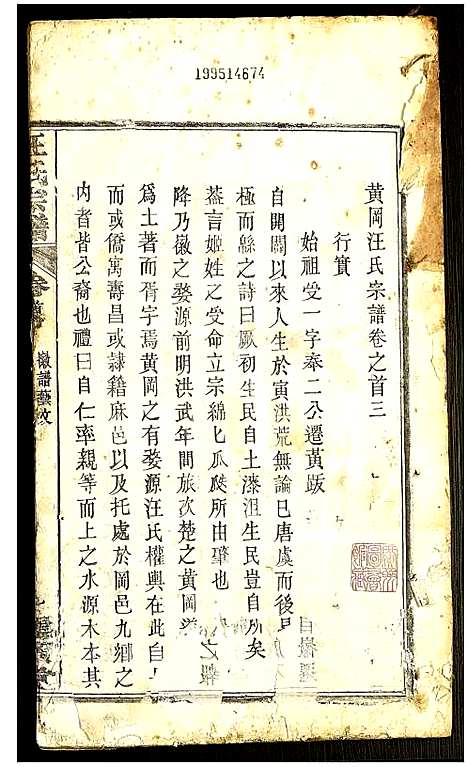 199514674
黃岡汪氏宗譜卷之首三
行實
始祖受一字奉二公遷黃䟦
自開闢以來人生於寅洪荒無論已唐虞而後
極而緜之詩曰厥初生民自土漆沮生民豈自
葢言姬姓之受命立宗綿匕瓜瓞所由肇也
降乃徽之婺源前明洪武年間旅次楚之黃岡
爲土著而胥宇焉黃岡之有婺源汪氏權輿在此自
而或僑寓壽昌或隸籍麻邑以及托處於岡邑九鄉之
內者皆公裔也禮曰自仁率親等而上之水源木本其
汪氏宗譜
徽譜藝文